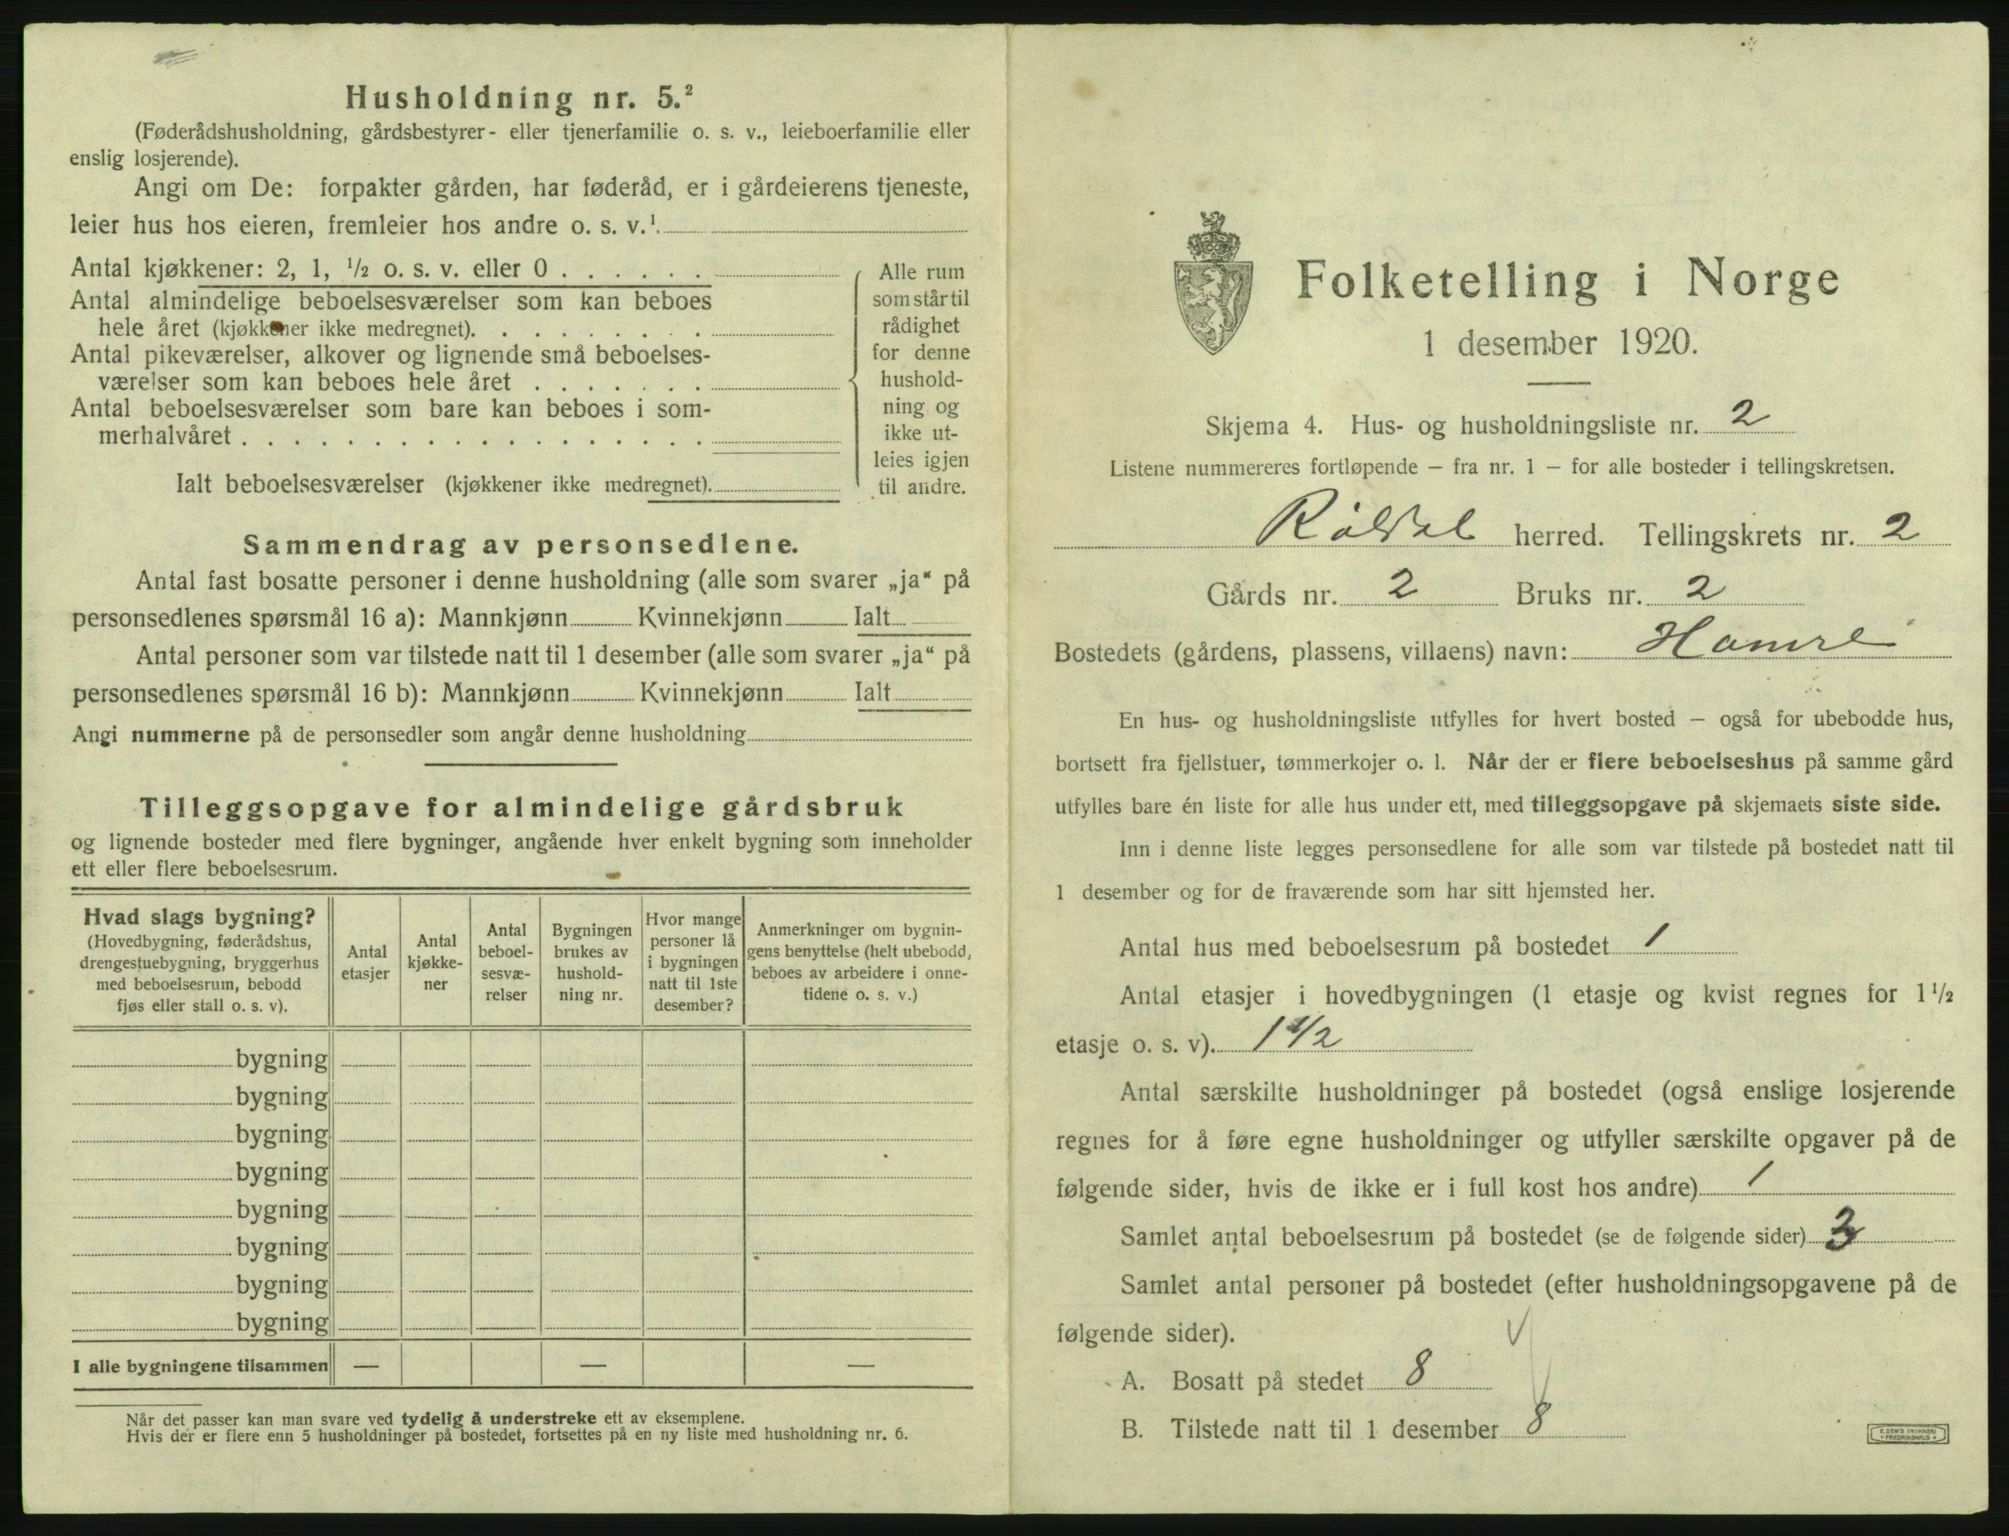 Husholdning nr. 5.²
(Føderådshusholdning, gårdsbestyrer- eller tjenerfamilie o. s. v., leieboerfamilie eller
enslig losjerende).
Angi om De: forpakter gården, har føderåd, er i gårdeierens tjeneste,
leier hus hos eieren, fremleier hos andre o. s. v.¹.
Antal kjøkkener: 2, 1, ½ o. s. v. eller 0 . . . . . .
Antal almindelige beboelsesværelser som kan beboes
hele året (kjøkkener ikke medregnet). . . . . . . . .
Antal pikeværelser, alkover og lignende små beboelses-
værelser som kan beboes hele året . . . . . . .
Antal beboelsesværelser som bare kan beboes i som-
merhalvåret . . . . . . . . . . . . . . . . . .
Ialt beboelsesværelser (kjøkkener ikke medregnet).
Alle rum
som står til
rådighet
for denne
hushold-
ning og
ikke ut-
leies igjen
til andre.
Sammendrag av personsedlene.
Antal fast bosatte personer i denne husholdning (alle som svarer „ja“ på
personsedlenes spørsmål 16 a): Mannkjønn Kvinnekjønn Ialt
Antal personer som var tilstede natt til 1 desember (alle som svarer „ja“ på
personsedlenes spørsmål 16 b): Mannkjønn Kvinnekjønn Ialt
Angi nummerne på de personsedler som angår denne husholdning
Tilleggsopgave for almindelige gårdsbruk
og lignende bosteder med flere bygninger, angående hver enkelt bygning som inneholder
ett eller flere beboelsesrum.
Hvad slags bygning?
(Hovedbygning, føderådshus,
drengestuebygning, bryggerhus
med beboelsesrum, bebodd
fjøs eller stall o. s. v).
Antal
etasjer
Antal
kjøkke-
ner
Antal
beboel-
sesvæ-
relser
Bygningen
brukes av
hushold-
ning nr.
Hvor mange
personer lå
i bygningen
natt til 1ste
desember?
Anmerkninger om bygnin-
gens benyttelse (helt ubebodd,
beboes av arbeidere i onne-
tidene o. s. v.)
bygning
bygning
bygning
bygning
bygning
bygning
bygning
bygning
I alle bygningene tilsammen — — —
Når det passer kan man svare ved tydelig å understreke ett av eksemplene.
Hvis der er flere enn 5 husholdninger på bostedet, fortsettes på en ny liste med husholdning nr. 6.
Folketelling i Norge
1 desember 1920.
Skjema 4. Hus- og husholdningsliste nr. 2
Listene nummereres fortløpende – fra nr. 1 – for alle bosteder i tellingskretsen.
Røldal herred. Tellingskrets nr. 2
Gårds nr. 2 Bruks nr. 2
Bostedets (gårdens, plassens, villaens) navn: Hamre
En hus- og husholdningsliste utfylles for hvert bosted – også for ubebodde hus,
bortsett fra fjellstuer, tømmerkojer o. l. Når der er flere beboelseshus på samme gård
utfylles bare én liste for alle hus under ett, med tilleggsopgave på skjemaets siste side.
Inn i denne liste legges personsedlene for alle som var tilstede på bostedet natt til
1 desember og for de fraværende som har sitt hjemsted her.
Antal hus med beboelsesrum på bostedet 1
Antal etasjer i hovedbygningen (1 etasje og kvist regnes for 1½
etasje o. s. v). 1½
Antal særskilte husholdninger på bostedet (også enslige losjerende
regnes for å føre egne husholdninger og utfyller særskilte opgaver på de
følgende sider, hvis de ikke er i full kost hos andre) 1
Samlet antal beboelsesrum på bostedet (se de følgende sider) 3
Samlet antal personer på bostedet (efter husholdningsopgavene på de
følgende sider).
A. Bosatt på stedet 8
B. Tilstede natt til 1 desember 8